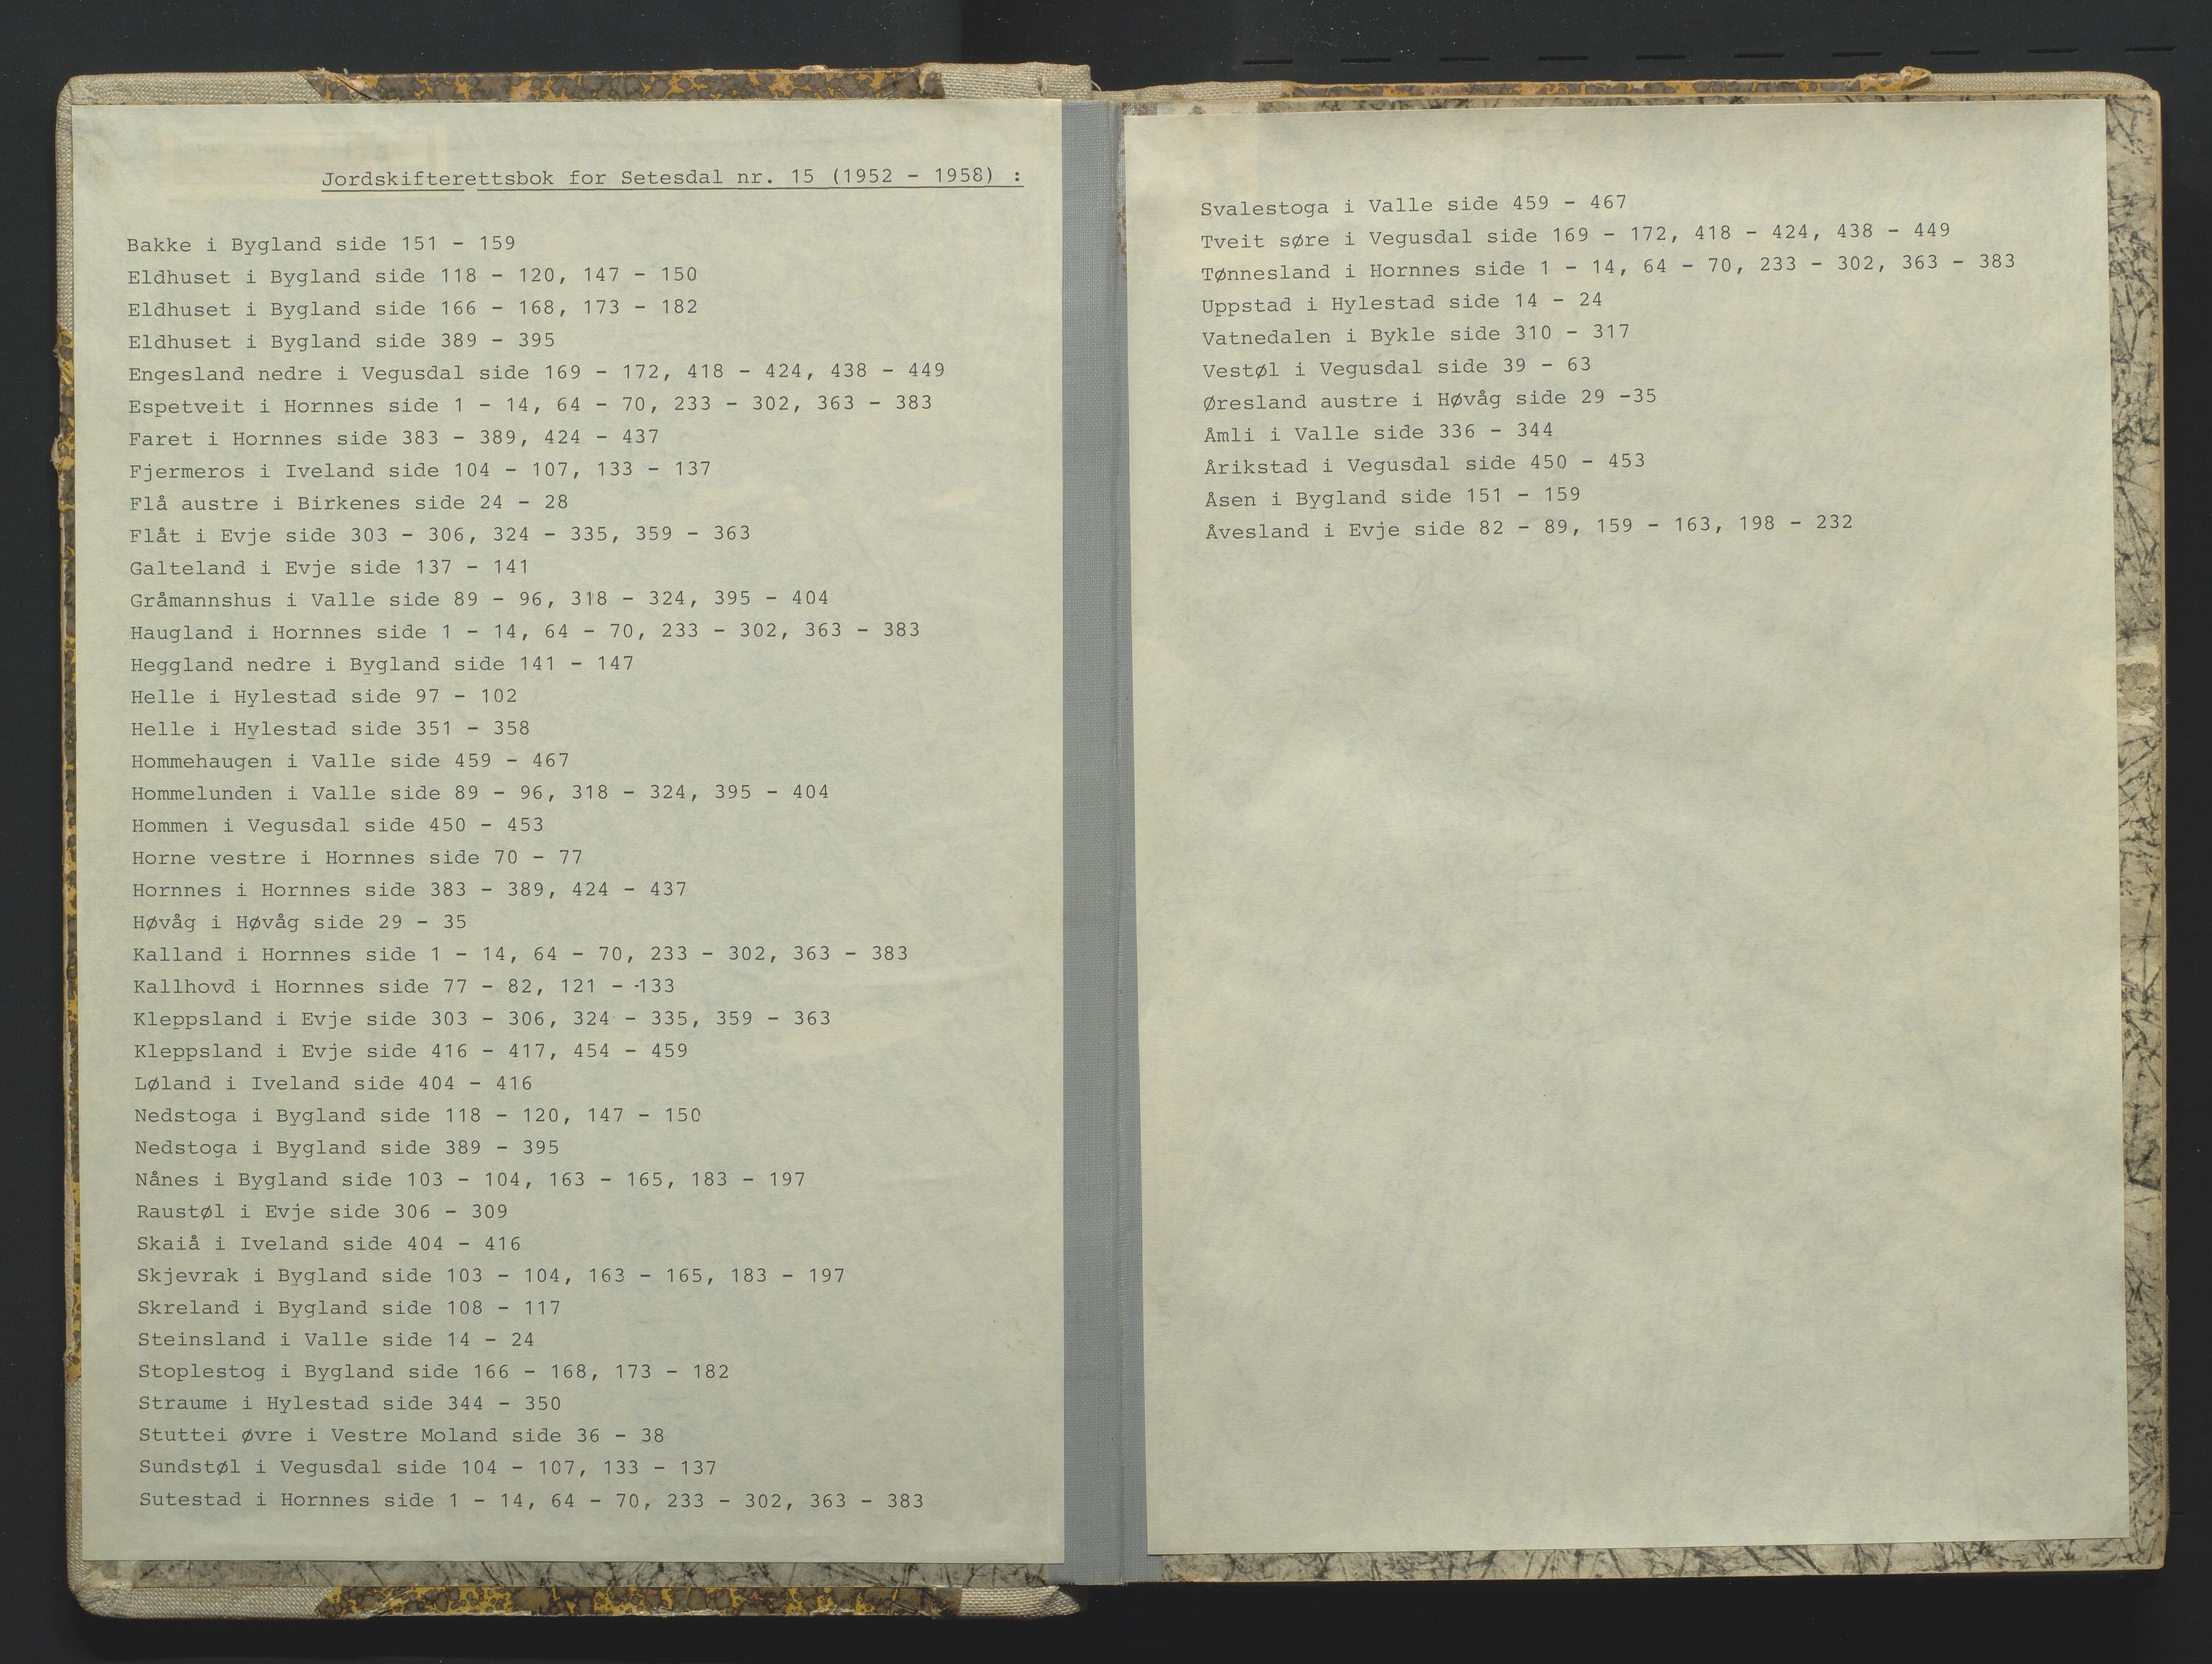 Jordskifterettsbok for Setesdal nr. 15 (1952 - 1958) :
Bakke i Bygland side 151 - 159
Eldhuset i Bygland side 118 - 120, 147 - 150
Eldhuset i Bygland side 166 - 168, 173 - 182
Eldhuset i Bygland side 389 - 395
Engesland nedre i Vegusdal side 169 - 172, 418 - 424, 438 - 449
Espetveit i Hornnes side 1 - 14, 64 - 70, 233 - 302, 363 - 383
Faret i Hornnes side 383 - 389, 424 - 437
Fjermeros i Iveland side 104 - 107, 133 - 137
Flå austre i Birkenes side 24 - 28
Flåt i Evje side 303 - 306, 324 - 335, 359 - 363
Galteland i Evje side 137 - 141
Gråmannshus i Valle side 89 - 96, 318 - 324, 395 - 404
Haugland i Hornnes side 1 - 14, 64 - 70, 233 - 302, 363 - 383
Heggland nedre i Bygland side 141 - 147
Helle i Hylestad side 97 - 102
Helle i Hylestad side 351 - 358
Hommehaugen i Valle side 459 - 467
Hommelunden i Valle side 89 - 96, 318 - 324, 395 - 404
Hommen i Vegusdal side 450 - 453
Horne vestre i Hornnes side 70 - 77
Hornnes i Hornnes side 383 - 389, 424 - 437
Høvåg i Høvåg side 29 - 35
Kalland i Hornnes side 1 - 14, 64 - 70, 233 - 302, 363 - 383
Kallhovd i Hornnes side 77 - 82, 121 - 133
Kleppsland i Evje side 303 - 306, 324 - 335, 359 - 363
Kleppsland i Evje side 416 - 417, 454 - 459
Løland i Iveland side 404 - 416
Nedstoga i Bygland side 118 - 120, 147 - 150
Nedstoga i Bygland side 389 - 395
Nånes i Bygland side 103 - 104, 163 - 165, 183 - 197
Raustøl i Evje side 306 - 309
Skaiå i Iveland side 404 - 416
Skjevrak i Bygland side 103 - 104, 163 - 165, 183 - 197
Skreland i Bygland side 108 - 117
Steinsland i Valle side 14 - 24
Stoplestog i Bygland side 166 - 168, 173 - 182
Straume i Hylestad side 344 - 350
Stuttei øvre i Vestre Moland side 36 - 38
Sundstøl i Vegusdal side 104 - 107, 133 - 137
Sutestad i Hornnes side 1 - 14, 64 - 70, 233 - 302, 363 - 383
Svalestoga i Valle side 459 - 467
Tveit søre i Vegusdal side 169 - 172, 418 - 424, 438 - 449
Tønnesland i Hornnes side 1 - 14, 64 - 70, 233 - 302, 363 - 383
Uppstad i Hylestad side 14 - 24
Vatnedalen i Bykle side 310 - 317
Vestøl i Vegusdal side 39 - 63
Øresland austre i Høvåg side 29 -35
Åmli i Valle side 336 - 344
Årikstad i Vegusdal side 450 - 453
Åsen i Bygland side 151 - 159
Åvesland i Evje side 82 - 89, 159 - 163, 198 - 232